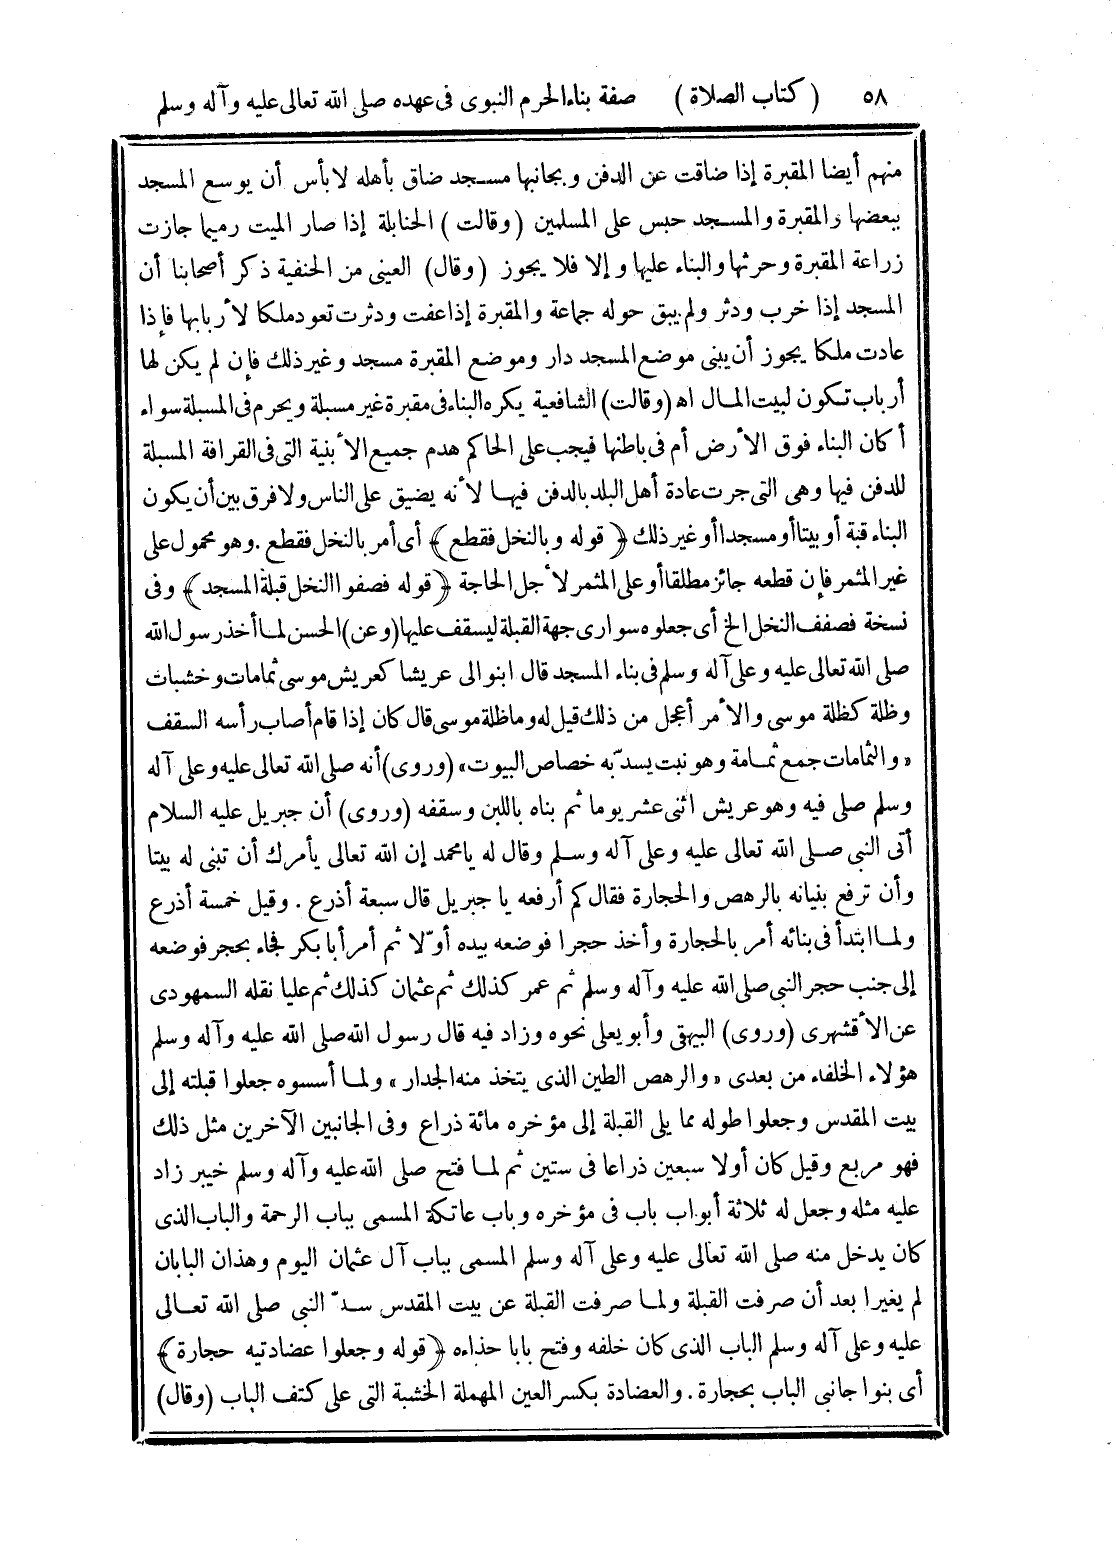 ٥٨ (كتاب الصلاة) صفة بناء الحرم النبوى فى عهده صلى الله تعالى عليه وآله وسلم
منهم أيضا المقبرة إذا ضاقت عن الدفن وبجانبها مسجد ضاق بأهله لا بأس أن يوسع المسجد
ببعضها والمقبرة والمسجد حبس على المسلمين (وقالت) الحنابلة إذا صار الميت رميما جازت
زراعة المقبرة وحرثها والبناء عليها وإلا فلا يجوز (وقال) العينى من الحنفية ذكر أصحابنا أن
المسجد إذا خرب ودثر ولم يبق حوله جماعة والمقبرة إذا عفت ودثرت تعود ملكا لأربابها فإذا
عادت ملكا يجوز أن يبنى موضع المسجد دار وموضع المقبرة مسجد وغير ذلك فإن لم يكن لها
أرباب تكون لبيت المال اه (وقالت) الشافعية يكره البناء فى مقبرة غير مسبلة ويحرم فى المسبلة سواء
أكان البناء فوق الأرض أم فى باطنها فيجب على الحاكم هدم جميع الأبنية التى فى القرافة المسبلة
للدفن فيها وهى التى جرت عادة أهل البلد بالدفن فيها لأنه يضيق على الناس ولا فرق بين أن يكون
البناء قبة أو بيتا أو مسجدا أو غير ذلك ﴿قوله وبالنخل فقطع﴾ أى أمر بالنخل فقطع. وهو محمول على
غير المثمر فإن قطعه جائز مطلقا أو على المثمر لأجل الحاجة ﴿قوله فصفوا النخل قبلة المسجد﴾ وفى
نسخة فصفف النخل الخ أى جعلوه سوارى جهة القبلة ليسقف عليها (وعن) الحسن لما أخذ رسول الله
صلى الله تعالى عليه وعلى آله وسلم فى بناء المسجد قال ابنوا لى عريشا كعريش موسى ثمامات وخشبات
وظلة كظلة موسى والأمر أعجل من ذلك قيل له وما ظلة موسى قال كان إذا قام أصاب رأسه السقف
«والثمامات جمع ثمامة وهو نبت يسدّ به خصاص البيوت» (وروى) أنه صلى الله تعالى عليه وعلى آله
وسلم صلى فيه وهو عريش اثنى عشر يوما ثم بناه باللبن وسقفه (وروى) أن جبريل عليه السلام
أتى النبى صلى الله تعالى عليه وعلى آله وسلم وقال له يا محمد إن الله تعالى يأمرك أن تبنى له بيتا
وأن ترفع بنيانه بالرهص والحجارة فقال كم أرفعه يا جبريل قال سبعة أذرع. وقيل خمسة أذرع
ولما ابتدأ فى بنائه أمر بالحجارة وأخذ حجرا فوضعه بيده أوّلا ثم أمر أبا بكر فجاء بحجر فوضعه
إلى جنب حجر النبى صلى الله عليه وآله وسلم ثم عمر كذلك ثم عثمان كذلك ثم عليا نقله السمهودى
عن الأقشهرى (وروى) البيهقى وأبو يعلى نحوه وزاد فيه قال رسول الله صلى الله عليه وآله وسلم
هؤلاء الخلفاء من بعدى «والرهص الطين الذى يتخذ منه الجدار» ولما أسسوه جعلوا قبلته إلى
بيت المقدس وجعلوا طوله مما يلى القبلة إلى مؤخره مائة ذراع وفى الجانبين الآخرين مثل ذلك
فهو مربع وقيل كان أولا سبعين ذراعا فى ستين ثم لما فتح صلى الله عليه وآله وسلم خيبر زاد
عليه مثله وجعل له ثلاثة أبواب باب فى مؤخره وباب عاتكة المسمى بباب الرحمة والباب الذى
كان يدخل منه صلى الله تعالى عليه وعلى آله وسلم المسمى بباب آل عثمان اليوم وهذان البابان
لم يغيرا بعد أن صرفت القبلة ولما صرفت القبلة عن بيت المقدس سدّ النبى صلى الله تعالى
عليه وعلى آله وسلم الباب الذى كان خلفه وفتح بابا حذاءه ﴿قوله وجعلوا عضادتيه حجارة﴾
أى بنوا جانبى الباب بحجارة. والعضادة بكسر العين المهملة الخشبة التى على كتف الباب (وقال)